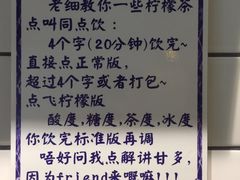 老细教你一些柠檬茶
点叫同点饮:
4个字(20分钟)饮完~
直接点正常版,
超过4个字或者打包~
点飞柠檬版
酸度,糖度,茶度,冰度
你饮完标准版再调
唔好问我点解讲甘多,
因为friend来嘅嘛!!!